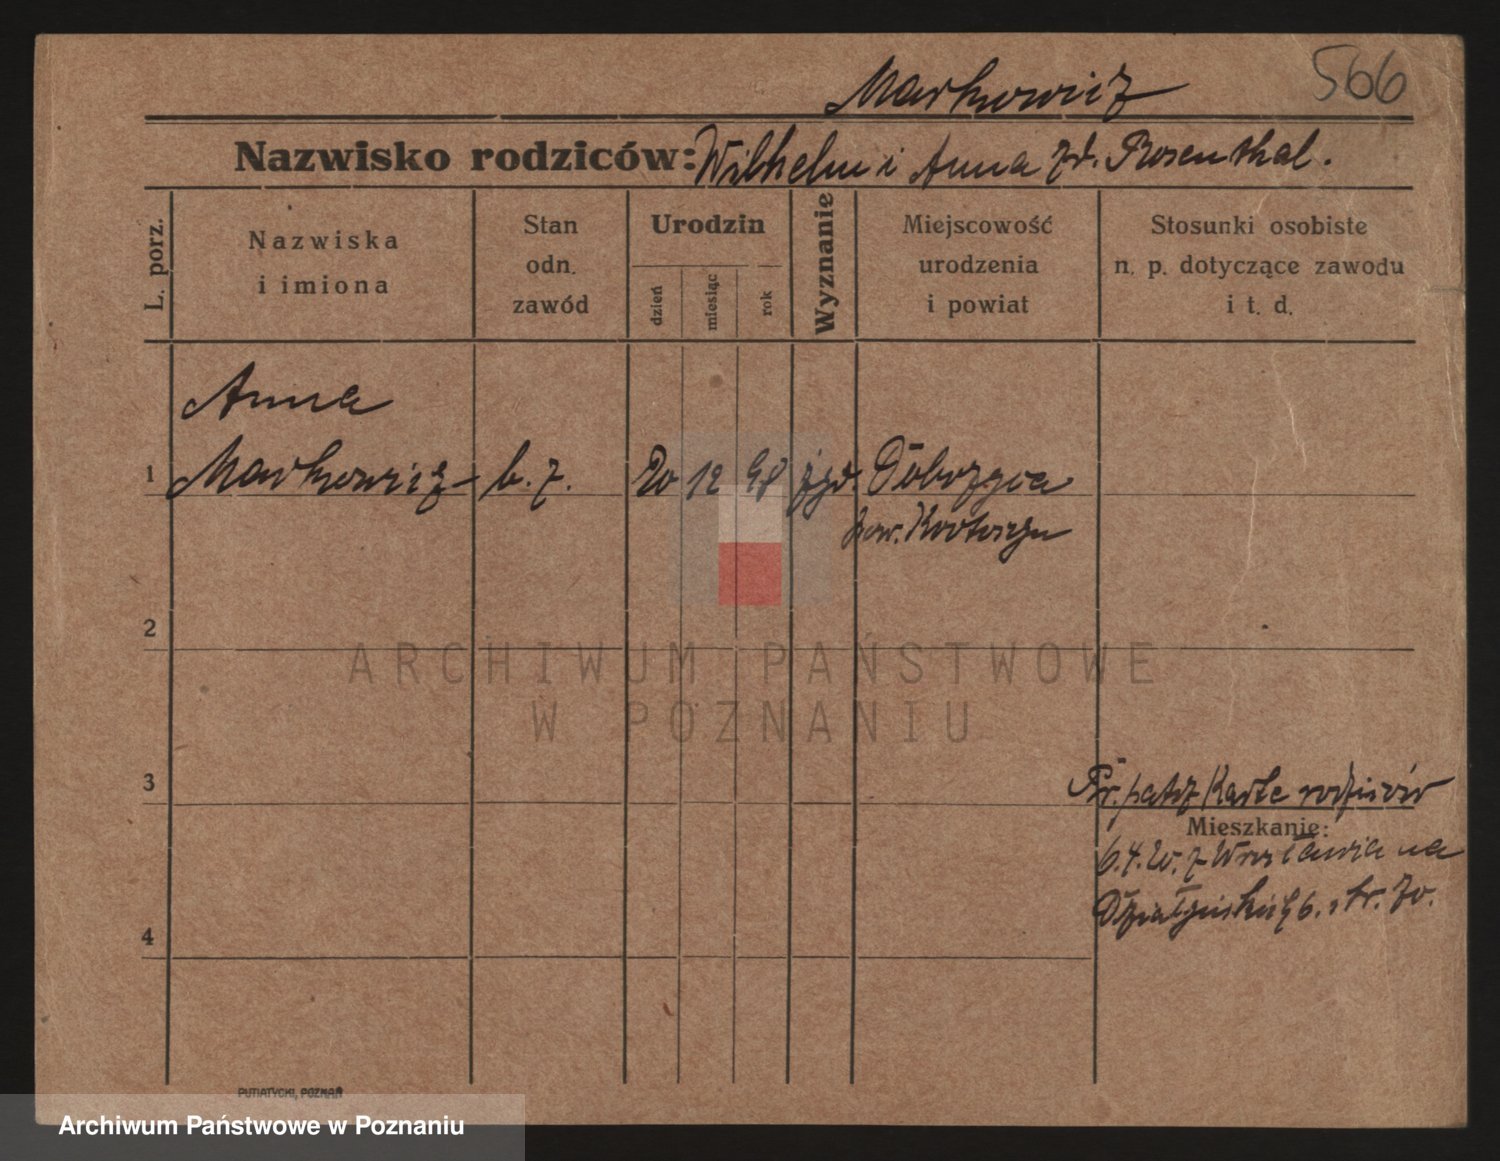 566
Markowicz
Nazwisko rodziców: Wilhelm i Anna zd. Rosenthal.
L. porz.
Nazwiska i imiona
Stan odn. zawód
Urodzin
dzień
miesiąc
rok
Wyznanie
Miejscowość urodzenia i powiat
Stosunki osobiste n. p. dotyczące zawodu i t. d.
Anna
1 Markowicz b. z. 20 12 98 żyd. Dobrzyca
pow. Krotoszyn
2
ARCHIWUM PAŃSTWOWE
W POZNANIU
3
Pr. patrz Karte rodziców
Mieszkanie:
6.4.20. z Wrocławia na
Działyńskich 6. tr.
4
PUTIATYCKI, POZNAŃ
Archiwum Państwowe w Poznaniu